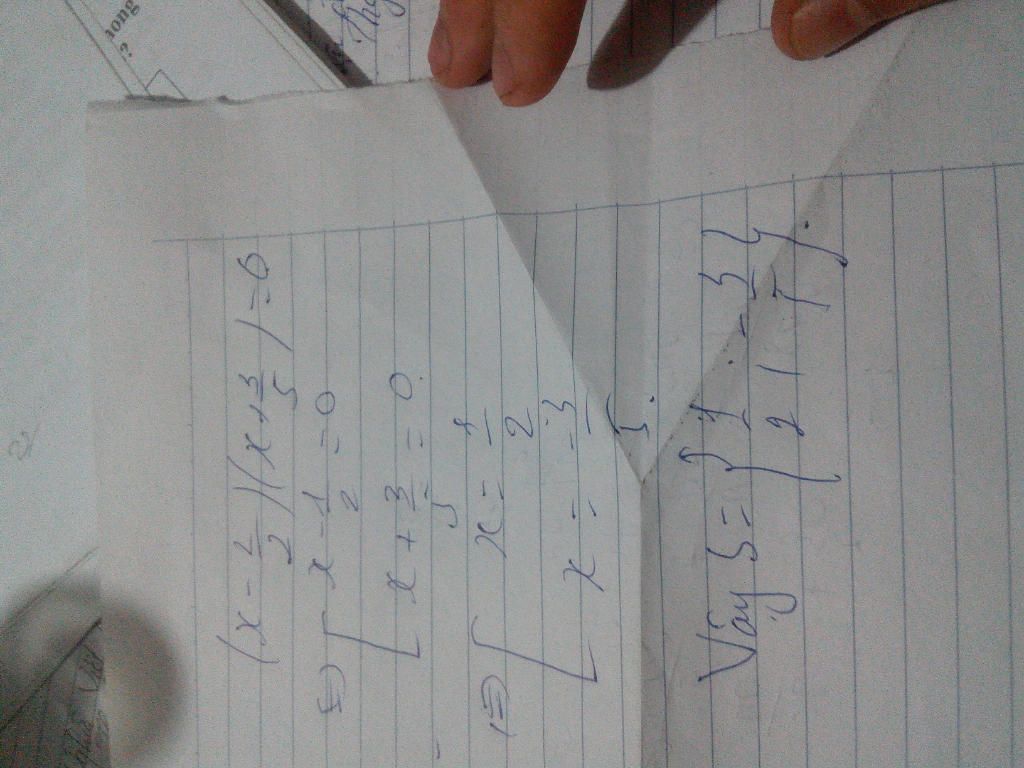 (x - 1/2)(x + 3/5) = 0
<=> [ x - 1/2 = 0
[ x + 3/5 = 0.
<=> [ x = 1/2
[ x = -3/5.
Vậy S = { 1/2 ; -3/5 }.
guot ?